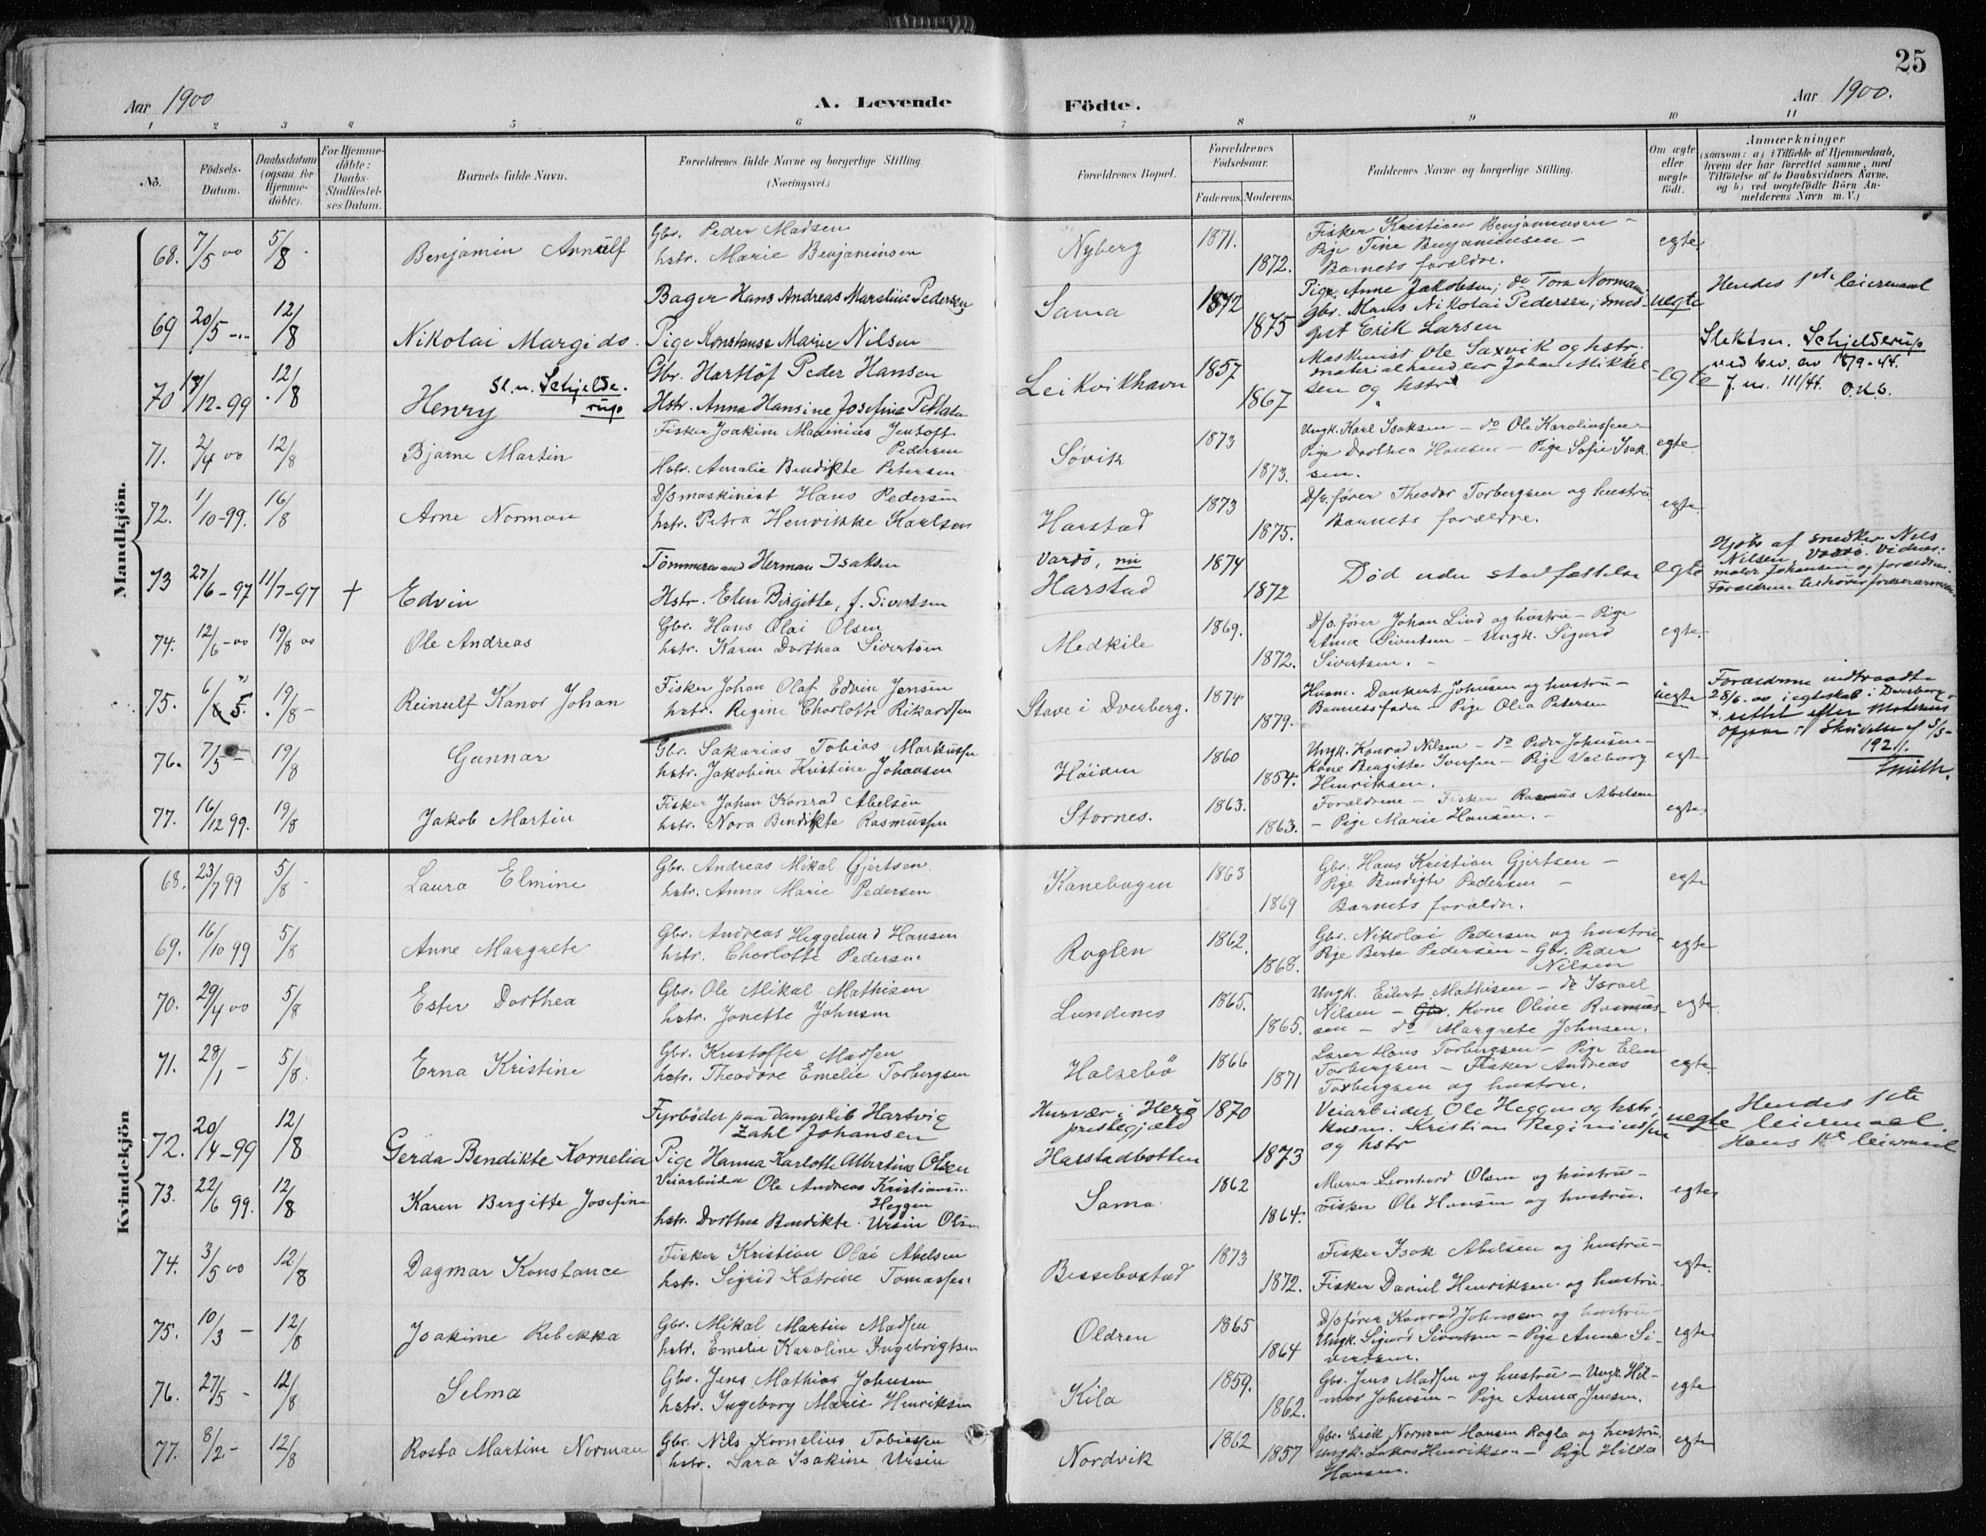 25
Aar 1900
A. Levende
Födte.
Aar 1900.
1 2 3 4 5 6 7 8 9 10 11
No.
Födsels-
Datum.
Daabsdatum
(ogsaa for
Hjemme-
döbte).
For Hjemme-
döbte:
Daabs-
Stadfæstel-
ses Datum.
Barnets fulde Navn.
Forældrenes fulde Navne og borgerlige Stilling.
(Næringsvei.)
Forældrenes Bopæl.
Forældrenes
Födselsaar.
Faderens.
Moderens.
Faddernes Navne og borgerlige Stilling.
Om ægte
eller
uægte
födt.
Anmærkninger
(saasom: a) i Tilfælde af Hjemmedaab,
hvem der har forrettet samme, med
Tilföielse af to Daabsvidners Navne,
og b) ved uægtefödte Börn An-
melderens Navn m. V.)
Mandkjön.
68. 7/5 00 5/8 Benjamin Arnulf
Gbr. Peder Madsen
hstr. Marie Benjaminsen
Nyberg 1871. 1872.
Fisker Kristian Benjaminsen –
Pige Tine Benjaminsen –
Barnets forældre.
egte
69 20/5 -"- 12/8 Nikolai Margido.
Bager Hans Andreas Marelius Pedersen
Pige Konstanse Marie Nilsen
Sama 1872 1875
Pige Anne Jakobsen, do Tora Norman
Gbr. Hans Nikolai Pedersen, smed-
gut Erik Larsen
uegte
Hendes 1ste leiermaal
70 12-99 12/8 Henry
Sl.n. Schjelde-
rup
Gbr. Hartlöf Peder Hansen
Hstr. Anna Hansine Josefine
Leikvikhavn 1857 1867
Maskinist Ole Saxvik og hstr.
materialhandler Johan Mikkel-
sen og hstr
egte
Slektsn. Schjelderup
ved bev. av 18/9-44.
J. nr. 111/44. O.K.S.
71. 2/4 00 12/8 Bjarne Martin
Fisker Joakim Madinius Jentoft
Pedersen
Hstr. Amalie Bendikte Petersen
Sövik 1873 1873.
Ungk. Karl Isaksen – do Ole Karoliussen –
Pige Dorthea Hansen – Pige Sofie Isak
sen.
egte
72. 1/10-99. 16/8 Arne Norman
D/s maskinist Hans Pedersen
hstr. Petra Henrikke Karlsen
Harstad 1873 1875.
D/s. fører Theodor Torbergsen og hustru
Barnets forældre.
egte
73 27/6-97 11/7-97 + Edvin
Tömmermand Herman Isaksen
Hstr. Elen Birgitte, f. Sivertsen
Vardö, nu
Harstad 1874 1872
Död uden stadfæstelse
egte
Hjdbt af snedker Nels
Nilsen, Vardö. Vidner:
maler Johansen og forældrene.
74. 12/6-00 19/8 00 Ole Andreas
Gbr. Hans Olai Olsen
hstr. Karen Dorthea Sivertsen
Medkile 1869. 1872.
D/s. fører Johan Lind og hustru – Pige
Anna Sivertsen – Ungk. Sigurd
Sivertsen. –
egte.
75. 6/5. 19/8 – Reinulf Kanor Johan
Fisker Johan Olaf Edvin Jensen
hstr. Regine Charlotte Rikardsen
Stave i Dverberg. 1874. 1879.
Husm. Dankert Johnsen og hustru –
Barnefaderen – Pige Olea Petersen
uegte
Forældrene indtraadte
28/6. 00 i egteskab i Dverberg
rettet efter Moderens
Opgave i Skrivelse af 3/5-
1921.
Smith.
76. 7/5 – 19/8 Gunnar
Gbr. Sakarias Tobias Markussen
hstr. Jakobine Kristine Johansen
Höiden 1860 1854.
Ungk. Konrad Nilsen – do Peder Johnsen –
Kone Bergitte Iversen – Pige Valborg
Henriksen.
egte
77. 16/12 99. 19/8 Jakob Martin
Fisker Johan Konrad Abelsen
hstr. Nora Bendikte Rasmussen
Stornes. 1863. 1863.
Forældrene – Fisker Rasmus Abelsen
– Pige Marie Hansen. –
egte.
Kvindekjön
68. 23/7 99 5/8 Laura Elmine
Gbr. Andreas Mikal Gjertsen
hstr. Anna Marie Pedersen
Kanebogen 1863 1869
Gbr. Hans Kristian Gjertsen –
Pige Bendigte Pedersen –
Barnets forældre.
egte
69. 16/10 99 5/8 Anne Margrete
Gbr. Andreas Heggelund Hansen
hstr. Charlotte Pedersen
Roglen 1862. 1868.
Gbr. Nikolai Pedersen og hustru –
Pige Berta Pedersen – Gbr. Peder
Nilsen
egte
70. 29/4 00 5/8 Ester Dorthea
Gbr. Ole Mikal Mathisen
hstr. Jonette Johnsen
Lundenes 1865. 1865.
Ungk. Eilert Mathisen – do Israel
Nilsen – Gbr. Kone Oline Rasmus-
sen – do Margrete Johnsen.
egte
71. 28/1 – 5/8. Erna Kristine
Gbr. Kristoffer Madsen
hstr. Theodore Emelie Torbergsen
Halsebö 1866 1871
Lærer Hans Torbergsen – Pige Elen
Torbergsen – Fisker Andreas
Torbergsen og hustru.
egte
72. 20/4-99 12/8 Gerda Bendikte Kornelia
Fyrböder paa dampskib Hartvig
Zahl Johansen
Pige Hanna Karlotte Albertine Olsen
Husvær i Herö
prestegjeld
Harstadbotten 1870 1873
Veiarbeider Ole Heggen og hstr.,
husm. Kristian Reginiussen
og hstr
uegte
Hendes 1ste
leiermaal.
Hans 1ste leiermaal
73. 22/6 99. 12/8 Karen Bergitte Josefine
Veiarbeider Ole Andreas Kristiansen
Heggen
hstr. Dorthea Bendikte Ursin Olsen
Sama 1862 1864.
Murer Leonhard Olsen og hustru –
Fisker Ole Hansen og hustru.
egte
74. 3/5 00 12/8 Dagmar Konstance
Fisker Kristian Olai Abelsen
hstr. Sigrid Katrine Tomassen
Bessebostad 1873 1872.
Fisker Isak Abelsen og hustru –
Fisker Daniel Henriksen og hustru
egte.
75. 10/3 – 12/8 Joakime Rebekka
Gbr. Mikal Martin Madsen
hstr. Emelie Karoline Ingebrigtsen
Oldren 1865 1864
D/s fører Konrad Johnsen og hustru –
Ungk. Sigurd Sivertsen – Pige Anna Si-
vertsen.
egte
76. 27/5 – 12/8 Selma
Gbr. Jens Mathias Johnsen
hstr. Ingeborg Marie Henriksen
Kila 1859. 1862.
Gbr. Jens Madsen og hustru – Ungk. Hil-
mar Johnsen – Pige Anna Jensen.
egte
77. 8/2 – 12/8 Rosta Martine Norman
Gbr. Nils Kornelius Tobiassen
hstr. Sara Isakine Ursin
Nordvik 1862 1857
Gbr. Erik Norman Hansen Rogla og hustru
Ungk. Lukas Henrikson – Pige Hilda
Hansen.
egte